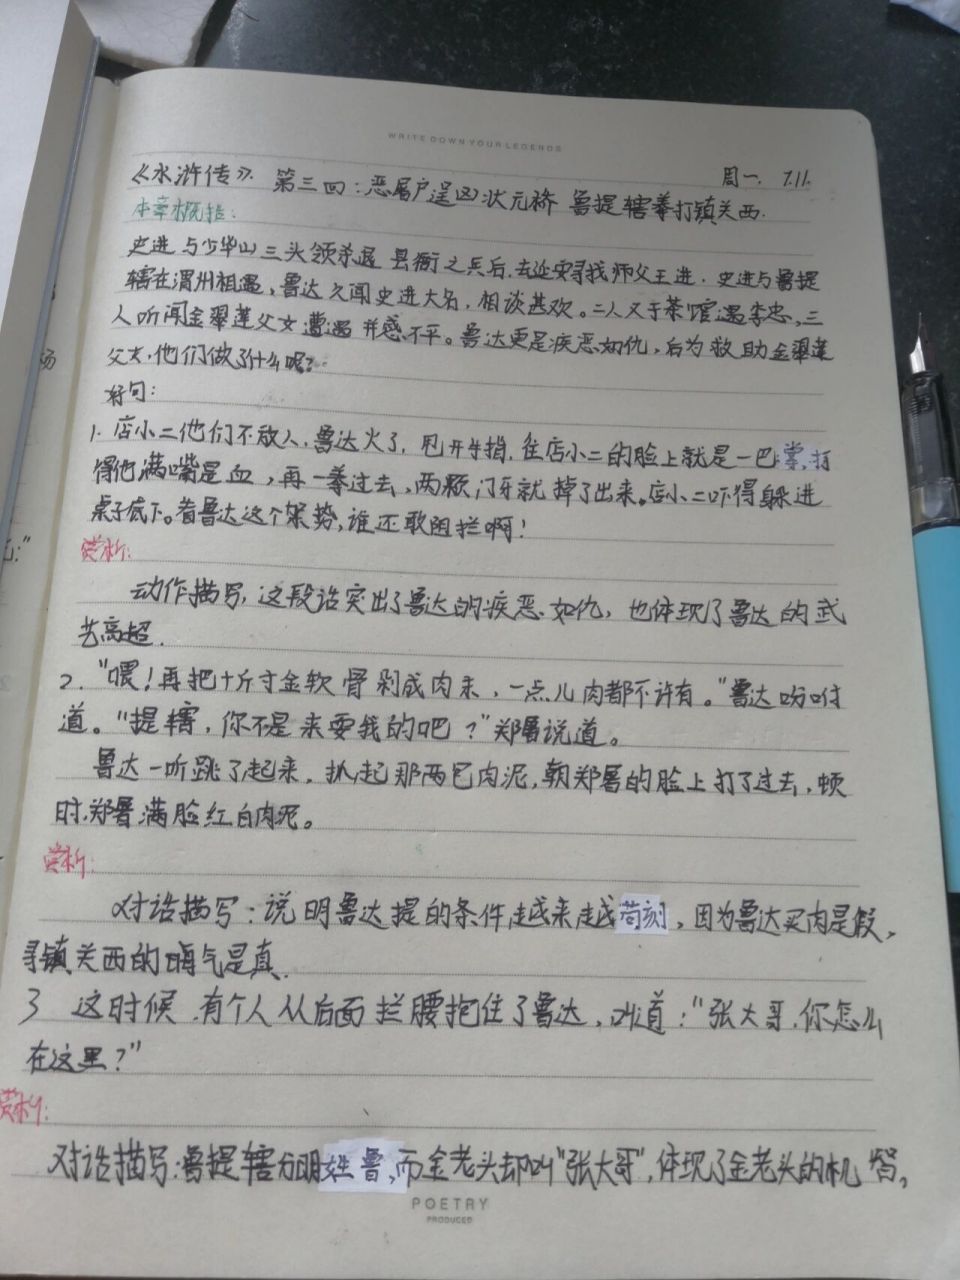 WRITE DOWN YOUR LEGENDS
《水浒传》. 第三回:恶屠户逞凶状元桥 鲁提辖拳打镇关西. 周一. 7.11.
本章概括:
史进与少华山三头领杀退县衙之兵后,去延安寻找师父王进.史进与鲁提
辖在渭州相遇,鲁达久闻史进大名,相谈甚欢。二人又于茶馆遇李忠,三
人听闻金翠莲父女遭遇并感不平。鲁达更是疾恶如仇,后为救助金翠莲
父女,他们做了什么呢?
好句:
1.店小二他们不放人,鲁达火了,甩开手指,往店小二的脸上就是一巴掌,打
得他满嘴是血,再一拳过去,两颗门牙就掉了出来。店小二吓得躲进
桌子底下。看鲁达这个架势,谁还敢阻拦啊!
赏析:
动作描写,这段话突出了鲁达的疾恶如仇,也体现了鲁达的武
艺高超.
2."喂!再把十斤寸金软骨剁成肉末,一点儿肉都不许有。"鲁达吩咐
道。"提辖,你不是来耍我的吧?"郑屠说道。
鲁达一听跳了起来,扒起那两包肉泥,朝郑屠的脸上打了过去,顿
时,郑屠满脸红白肉泥。
赏析:
对话描写:说明鲁达提的条件越来越苛刻,因为鲁达买肉是假,
寻镇关西的晦气是真.
3 这时候,有个人从后面拦腰抱住了鲁达,叫道:"张大哥,你怎么
在这里?"
赏析:
对话描写:鲁提辖分明姓鲁,而金老头却叫"张大哥",体现了金老头的机智。
POETRY
PRODUCED